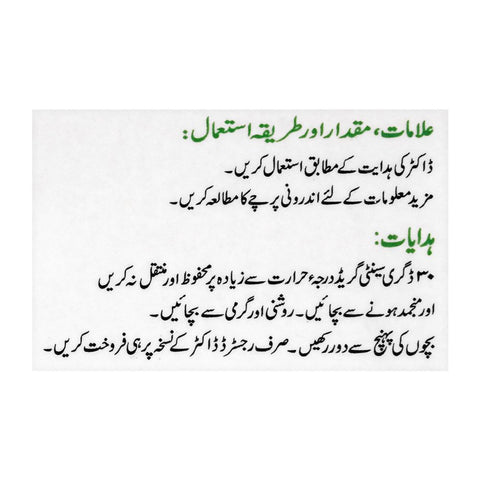 علامات، مقدار اور طریقہ استعمال:
ڈاکٹر کی ہدایت کے مطابق استعمال کریں۔
مزید معلومات کے لئے اندرونی پرچے کا مطالعہ کریں۔
ہدایات:
۳۰ ڈگری سینٹی گریڈ درجۂ حرارت سے زیادہ پر محفوظ اور منتقل نہ کریں
اور منجمد ہونے سے بچائیں۔ روشنی اور گرمی سے بچائیں۔
بچوں کی پہنچ سے دور رکھیں۔ صرف رجسٹرڈ ڈاکٹر کے نسخہ پر ہی فروخت کریں۔